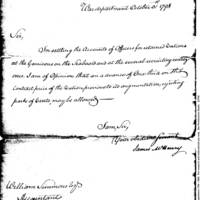 War department October 31st 1798
Sir,
In settling the Accounts of Officers for retained Rations
at the Garrisons on the Seaboard and at the several recruiting rendez-
vous. I am of Opinion that an advance of One third on the
contract price of the Rations, previous to its augmentation, rejecting
parts of Cents, may be allowed —
I am, Sir,
Your obedient Servant
James McHenry
William Simmons Esqr.
Accountant